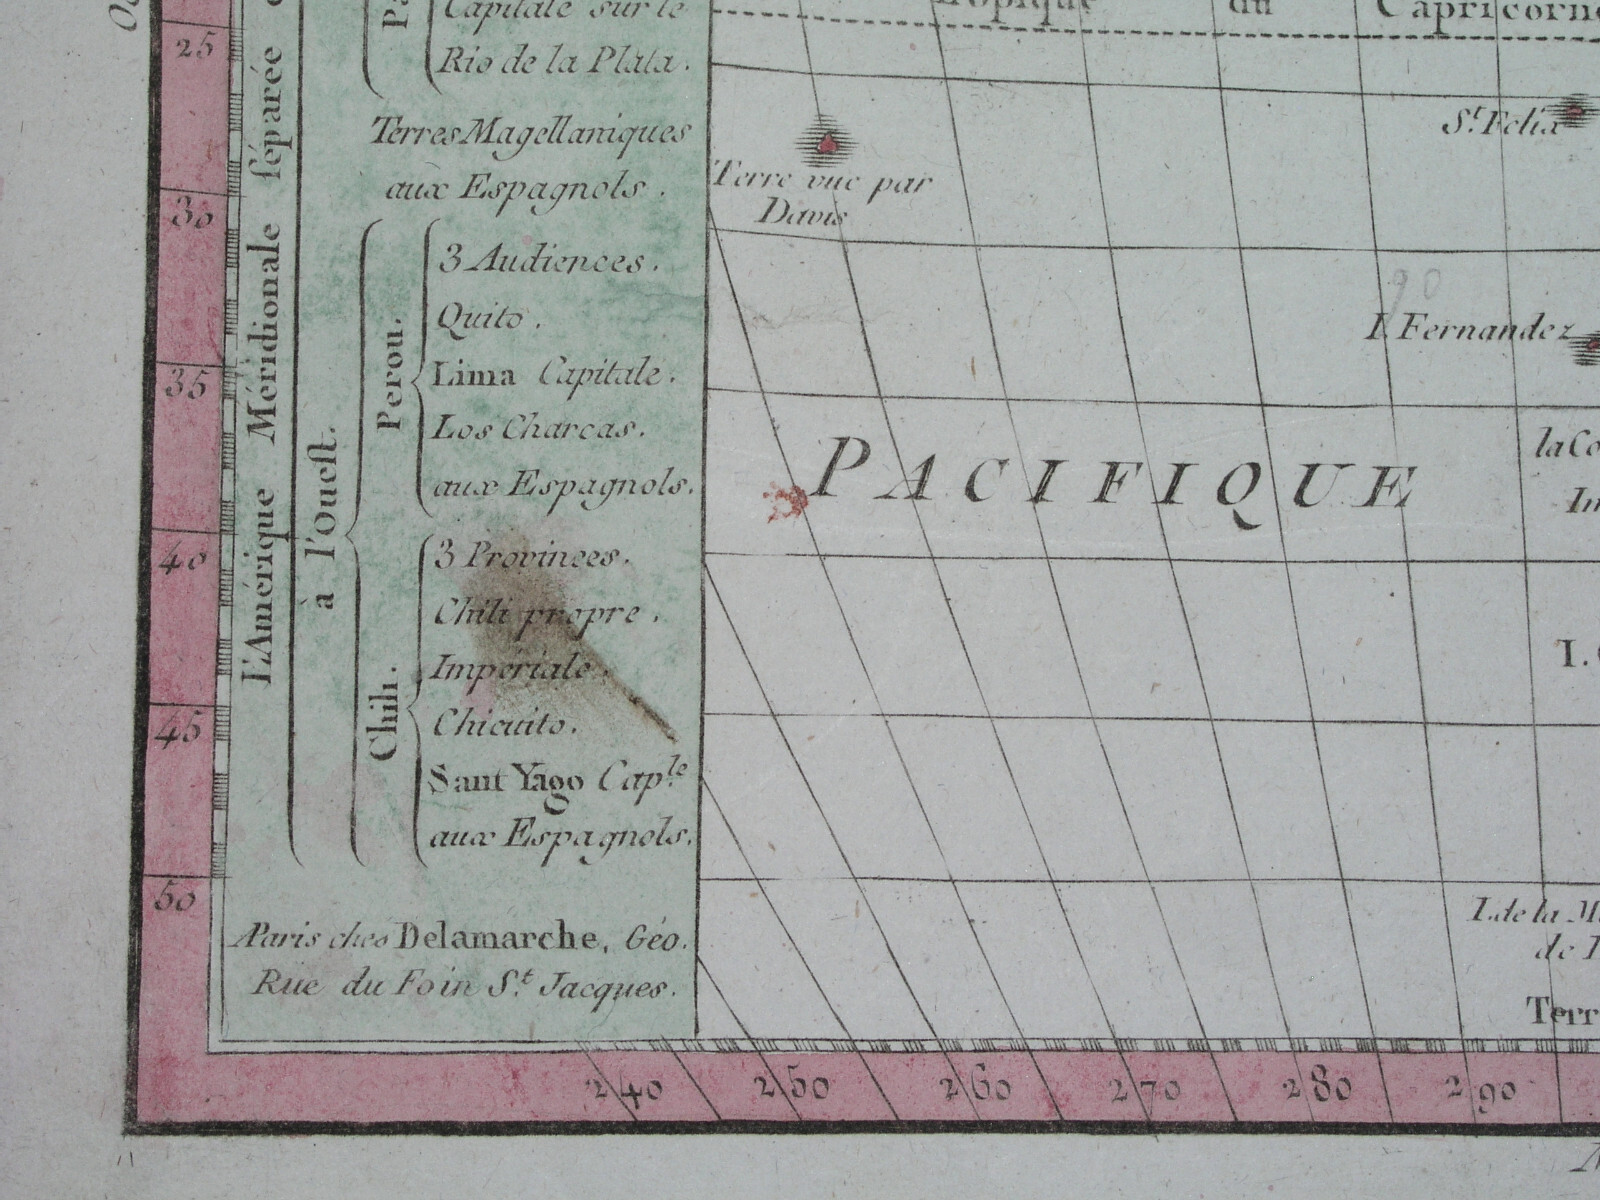 Capitale sur le
Rio de la Plata.
Terres Magellaniques
aux Espagnols.
l'Amérique Méridionale ſéparée
à l'Oueſt.
Perou.
3 Audiences.
Quito.
Lima Capitale.
Los Charcas.
aux Espagnols.
Chili.
3 Provinces.
Chili propre.
Impériale.
Chicuito.
Sant Yago Cap.le
aux Espagnols.
Paris ches Delamarche, Géo.
Rue du Foin St. Jacques.
25
30
35
40
45
50
Tropique du Capricorne
St. Felix
Terre vue par
Davis
90
I. Fernandez
PACIFIQUE
la Co
Im
I.
I. de la M
de
Terr
240 250 260 270 280 290